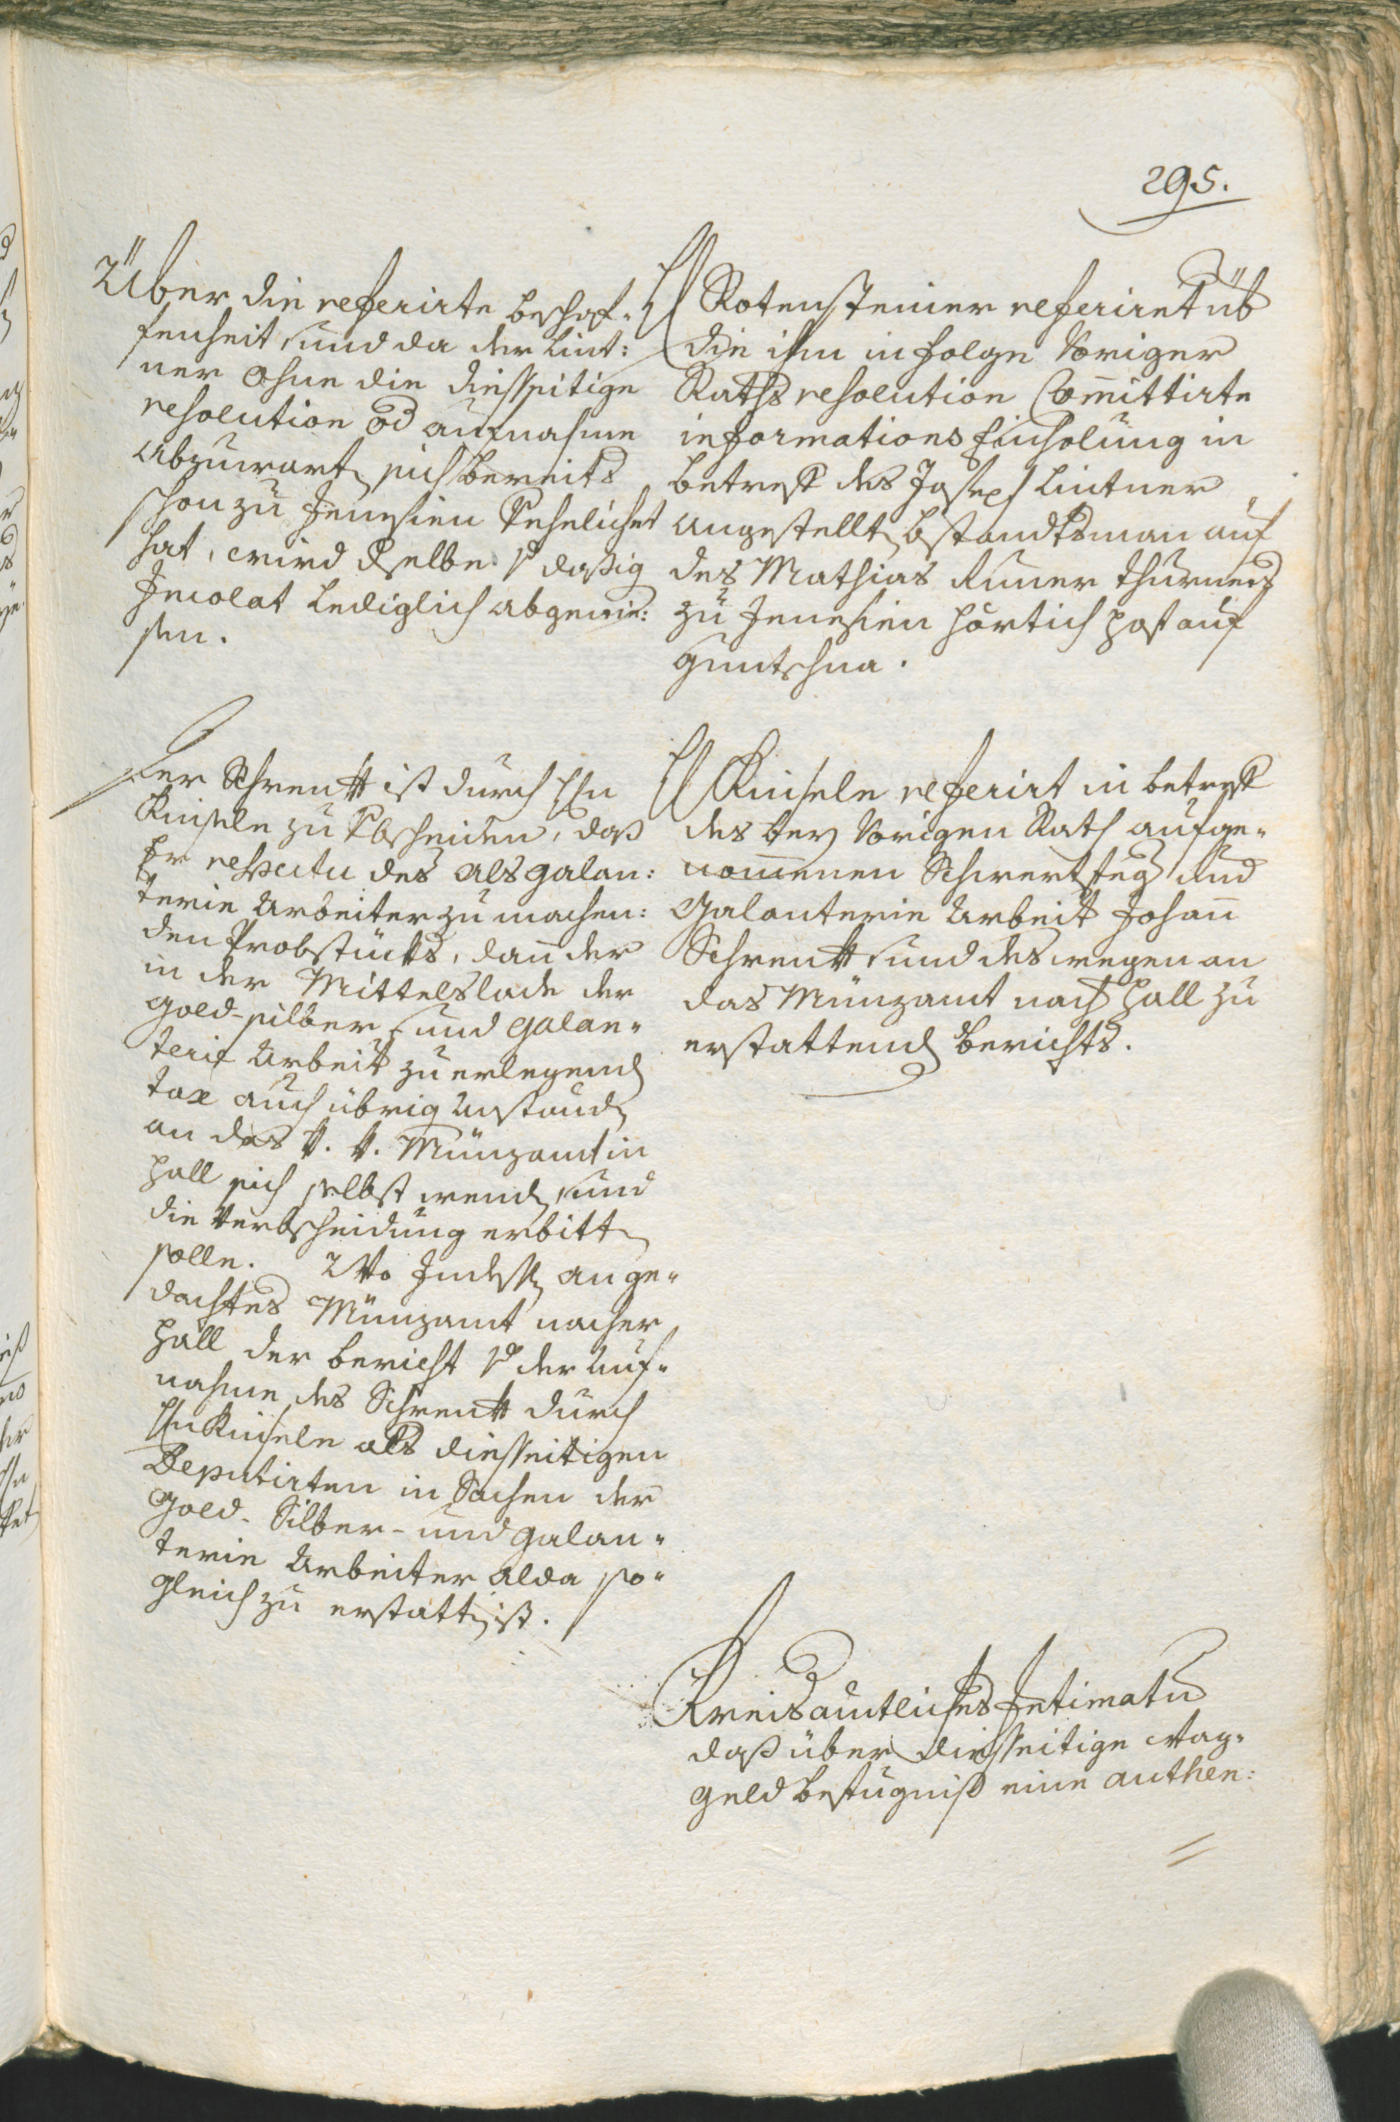 295.
Über die referirte beschaf-
fenheit, und da der Lint:
ner ohne die diesseitige
resolution od aufnahme
Abzuwarten sich bereits
schon zu Jenesien verehelichet
hat, wird derselbe daßig
Incolat lediglich abgewie:
sen.
Der Schrentt ist durch Hn
Kinsele zu verbscheiden, daß
Er respectu des als galan:
terie Arbeiter zu machen:
den Probstücks, dann der
in der Mittelslade der
gold-silber und galan-
terie Arbeiter zu erlegenden
tax auch übrig Umständen
an das k. k. Münzamt in
Hall sich selbst wenden, und
die Verbscheidung erbitten
solle. 2do Indessen an ge-
dachtes Münzamt nacher
Hall der bericht der Auf-
nahme des Schrentt durch
Hn Kinsele als diesseitigen
Deputirten in Sachen der
Gold- Silber- und galan-
terie Arbeiter alda so-
gleich zu erstatten ist.
H Rotensteiner referiret üb
die ihm in folge Voriger
Raths resolution Committirte
informations Einholung in
betreff des Joseph Lintner
angestellten bstandtsman auf
des Mathias Runer thurners
zu Jenesien hörtich hof auf
Guntschna.
H Kinsele referirt in betreff
des bey Vorigen Rath aufge-
nommenen Schwertfeg und
Galanterie Arbeiter Johann
Schrentt, und des wegen an
das Münzamt nach Hall zu
erstattenden berichts.
Kreisamtliches Intimatum
daß über diesseitige Wag-
geld befugniß eine authen: